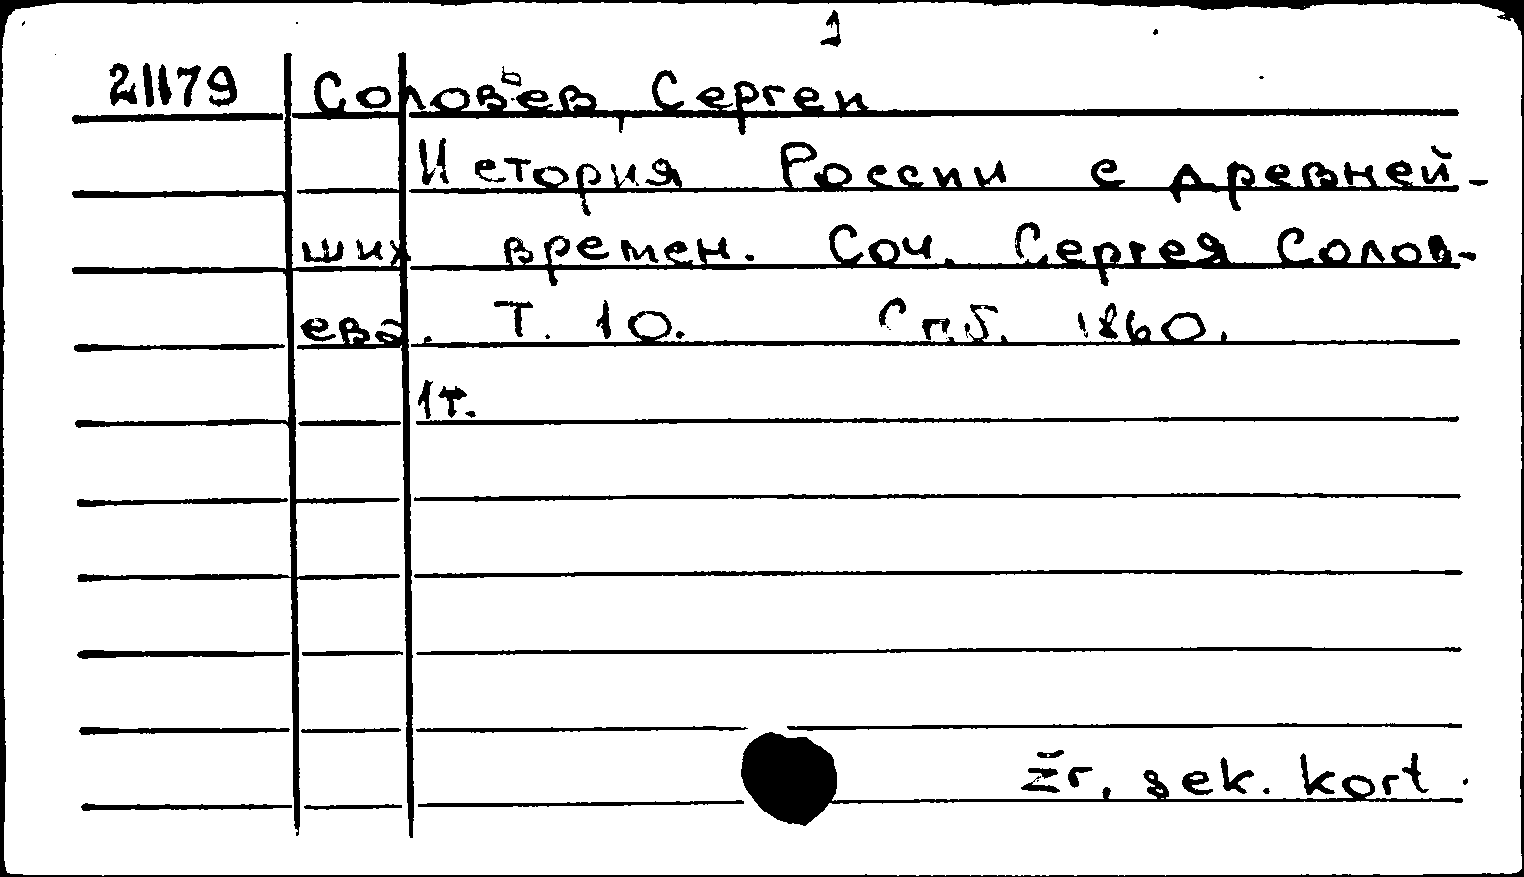 1
21179 Соловьев, Сергей
История России с древней-
ших времен. Соч. Сергея Солов-
ева. Т. 10. Спб. 1860.
1 т.
žr. sek. kort.